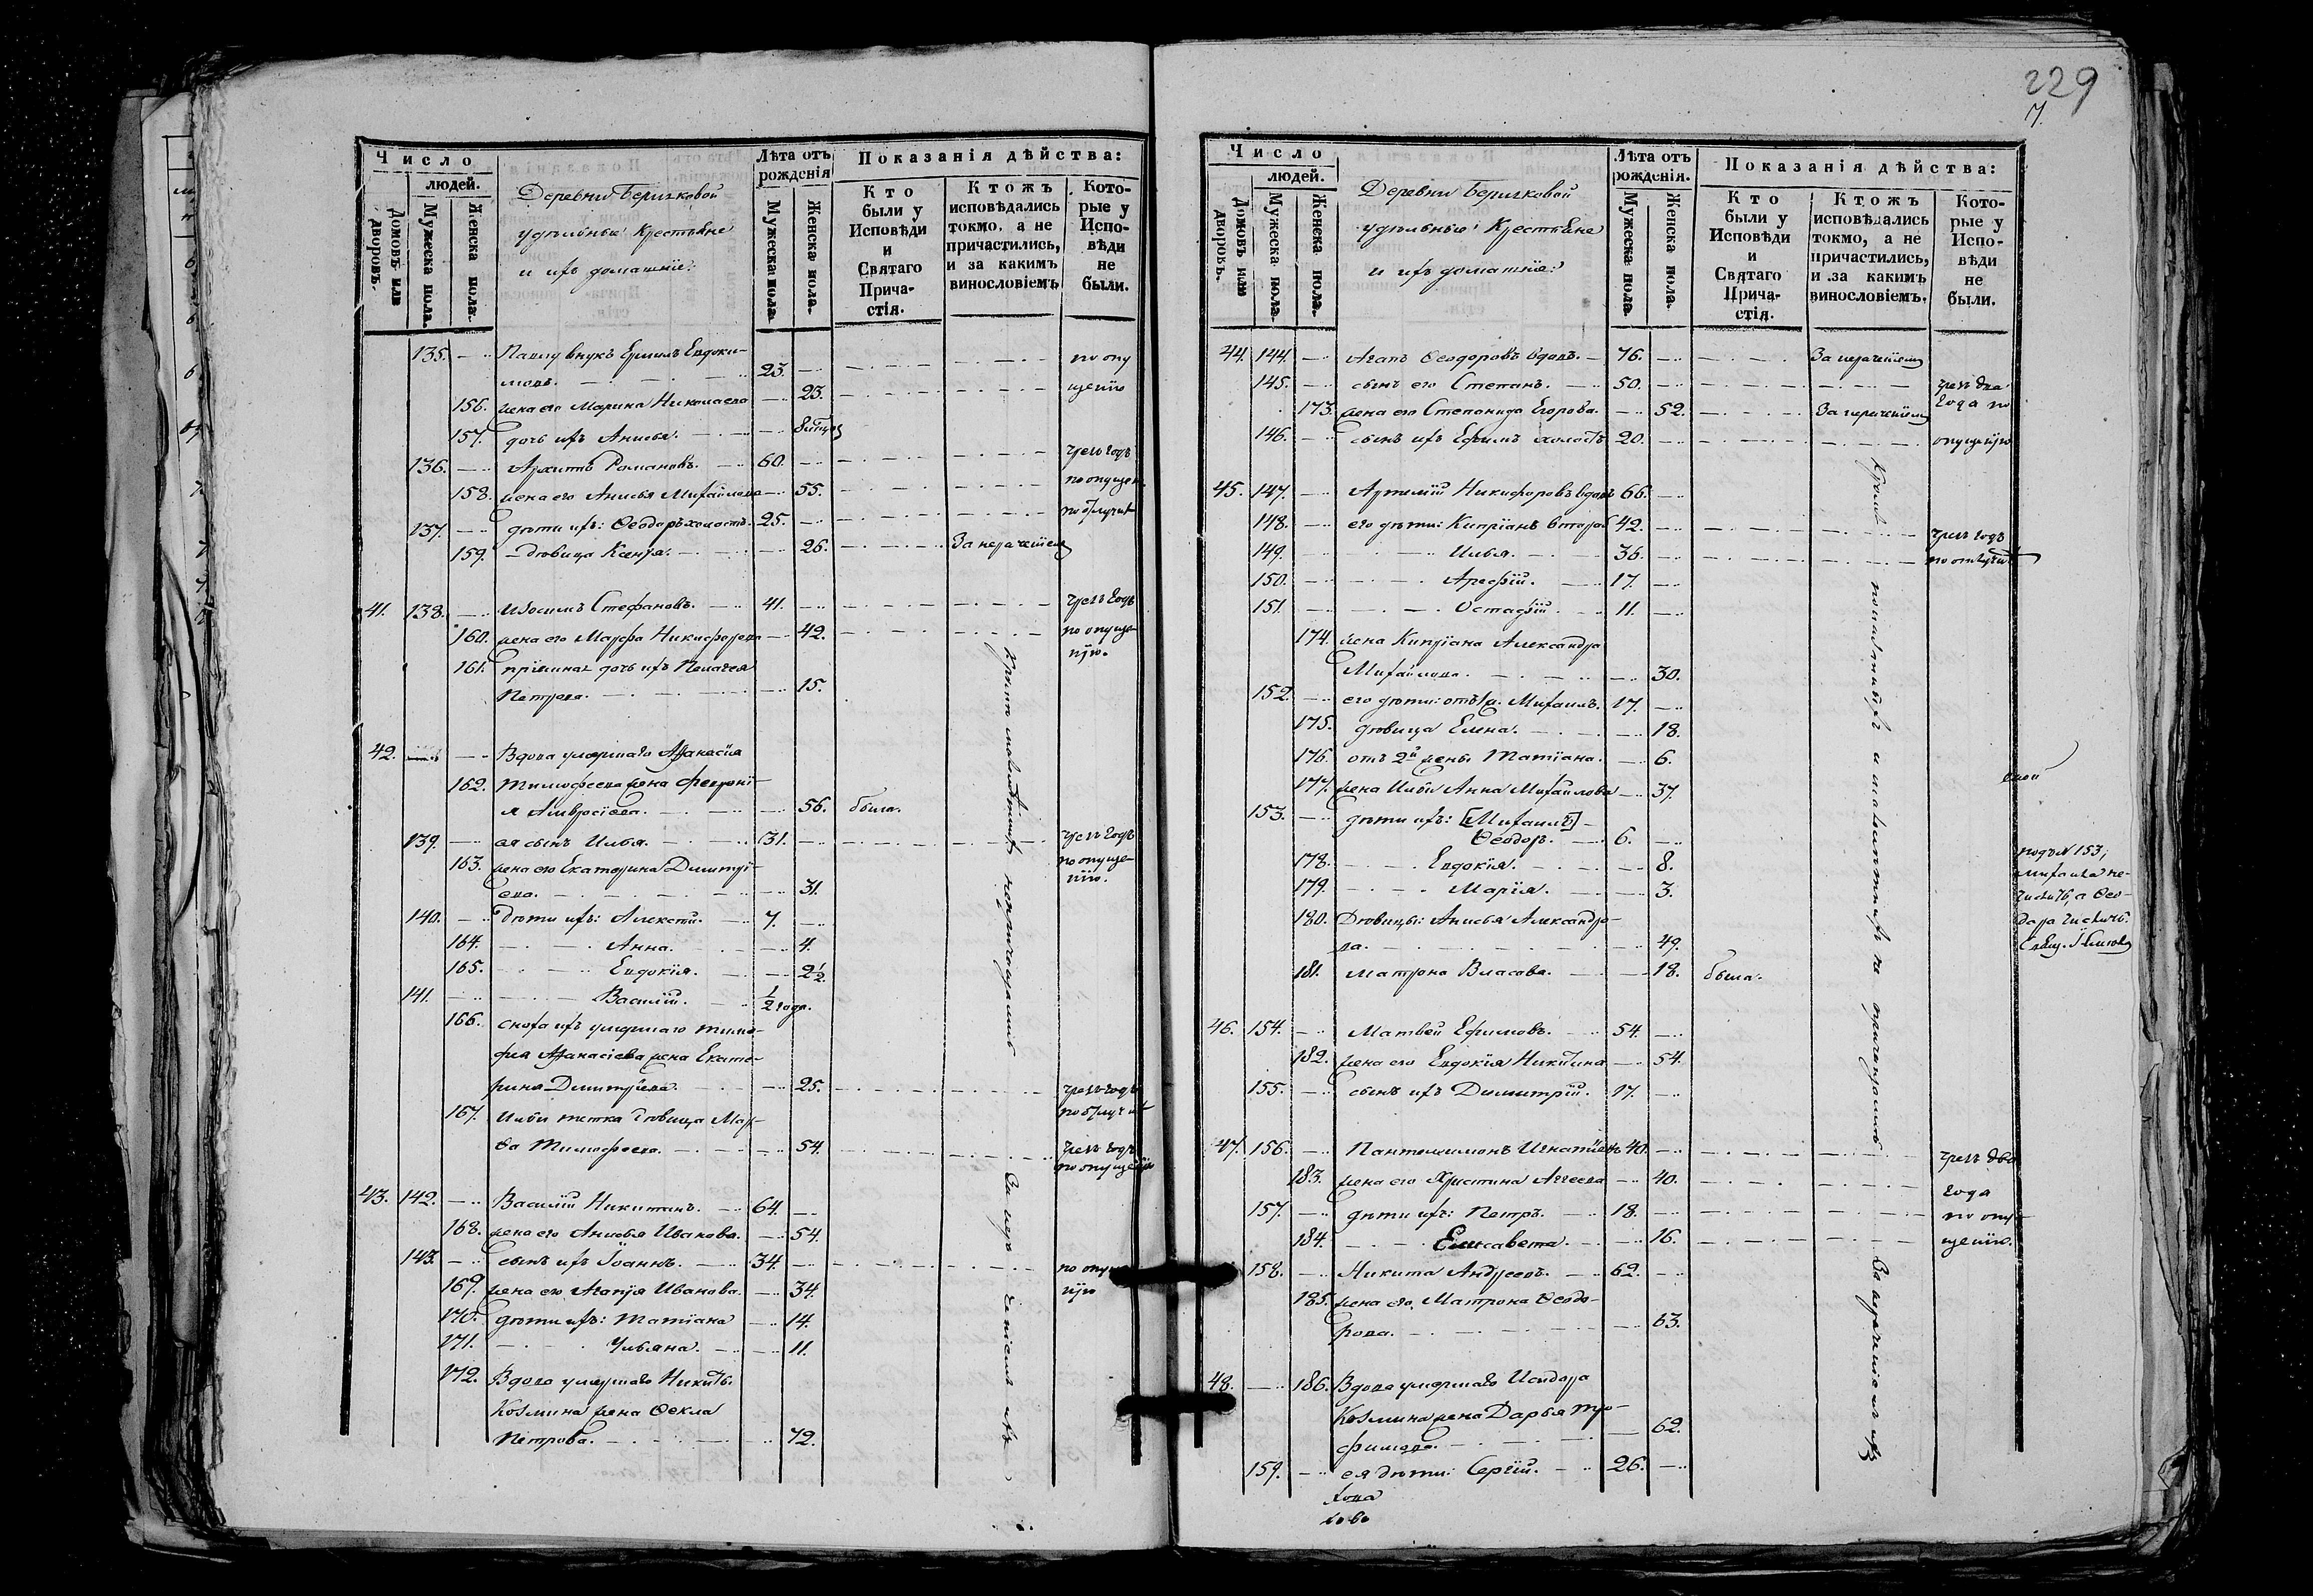 229
7.
Число
людей.
Домовъ или дворовъ.
Мужеска пола.
Женска пола.
Деревни
удѣльные Крестьяне
и ихъ домашніе:
Лѣта отъ рожденія
Мужеска пола.
Женска пола.
Показанія дѣйства:
Кто были у Исповѣди и Святаго Причастія.
Ктожъ исповѣдались токмо, а не причастились, и за какимъ винословіемъ
Которые у Исповѣди не были.
135. Павлу внукъ Ермилъ Евдоки- по опу
мовъ. 23.
156. жена его Марина Николаева 23. щенію
157. дочь ихъ Анисья.
136. Архипъ Романовъ. 60. чрезъ годъ
158. жена его Анисья Михайлова 55. по опущен.
137. дѣти ихъ: Ѳеодоръ холостъ. 25.
159. дѣвица Ксенія. 26. За нераченіемъ
41. 138. Изосимъ Стефановъ. 41. чрезъ годъ
160. жена его Марфа Никифорова 42. по опуще-
нію.
161. дочь ихъ Пелагея
Петрова. 15.
42. Вдова умершаго Аѳанасія
162. Тимофеева жена Февроні-
я Амвросіева. 56. была.
139. ея сынъ Илья. 31. чрезъ годъ
163. жена его Екатерина Димитрі- по опуще-
ева. 31. нію.
140. дѣти ихъ: Алексѣй. 7.
164. Анна. 4.
165. Евдокія. 2½
141. Василій. ½ года.
166. сноха ихъ умершаго Тимо-
фея Аѳанасіева жена Екате-
рина Димитріева. 25. чрезъ годъ
167. Ильи тетка дѣвица Мар-
ѳа Тимофеева. 54. чрезъ годъ
по опущенію
43. 142. Василій Никитинъ. 64.
168. жена его Анисья Иванова. 54.
143. сынъ ихъ Іоаннъ. 34. по опуще
169. жена его Агапія Иванова. 34. нію
170. дѣти ихъ: Татіана 14.
171. Ульяна. 11.
172. Вдова умершаго Никиты
Козмина жена Ѳекла
Петрова. 72.
Число
людей.
Домовъ или дворовъ.
Мужеска пола.
Женска пола.
Деревни
удѣльные Крестьяне
и ихъ домашніе:
Лѣта отъ рожденія.
Мужеска пола.
Женска пола.
Показанія дѣйства:
Кто были у Исповѣди и Святаго Причастія.
Ктожъ исповѣдались токмо, а не причастились, и за какимъ винословіемъ.
Которые у Исповѣди не были.
44. 144. Агапъ Ѳеодоровъ вдовъ. 76. За нераченіемъ
145. сынъ его Степанъ. 50. чрезъ два
173. жена его Степанида Егорова. 52. За нераченіемъ года по
146. сынъ ихъ Ефимъ холостъ 20. опущенію
45. 147. Артемій Никифоровъ вдовъ 66.
148. его дѣти: Кипріанъ 42.
149. Илья. 36. чрезъ годъ
150. Арефій. 17.
151. Остафій. 11.
174. жена Кипріана Александра
Михайлова. 30.
152. его дѣти: отъ 1й. Михаилъ. 17.
175. дѣвица Елена. 18.
176. отъ 2й жены Татіана. 6.
177. жена Ильи Анна Михайлова 37.
153. дѣти ихъ: [Михаилъ]
Ѳеодоръ. 6.
178. Евдокія. 8.
179. Марія. 3.
подъ N 153,
Михаила не-
числить, а Ѳео-
дора числить.
180. Дѣвицы: Анисья Александро-
ва. 49.
181. Матрона Власова. 18. была.
46. 154. Матвей Ефимовъ. 54.
182. жена его Евдокія Никитина 54.
155. сынъ ихъ Димитрій. 17.
47. 156. Пантелеимонъ Игнатіевъ 40. чрезъ два
183. жена его Христина Аггеева 40. года
157. дѣти ихъ: Петръ. 18. по опу
184. Елисавета. 16. щенію.
158. Никита Андреевъ. 62.
185. жена его Матрона Ѳеодо-
рова. 63.
48. 186. Вдова умершаго Исидора
Козмина жена Дарья Тро-
фимова. 62.
159. ея дѣти: Сергій. 26.